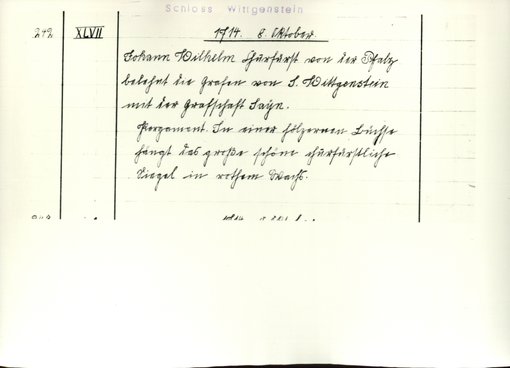 Schloss Wittgenstein
242 XLVII 1714. 8. Oktober.
Johann Wilhelm Churfürst von der Pfalz
belehnt die Grafen von S. Wittgenstein
mit der Grafschaft Sayn.
Pergament. In einer hölzernen Büchse
hängt das große schöne churfürstliche
Siegel in rothem Wachs.